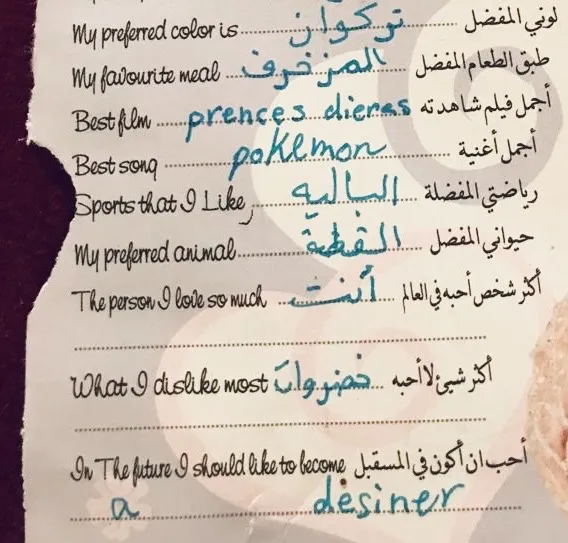 My preferred color is تركواز لوني المفضل
My favourite meal المزخرف طبق الطعام المفضل
Best film prences dieras أجمل فيلم شاهدته
Best song pokemon أجمل أغنية
Sports that I Like, الباليه رياضتي المفضلة
My preferred animal القطة حيواني المفضل
The person I love so much أنت أكثر شخص أحبه في العالم
What I dislike most خضروات أكثر شيئ لا أحبه
In The future I should like to become أحب ان أكون في المسقبل
a desiner